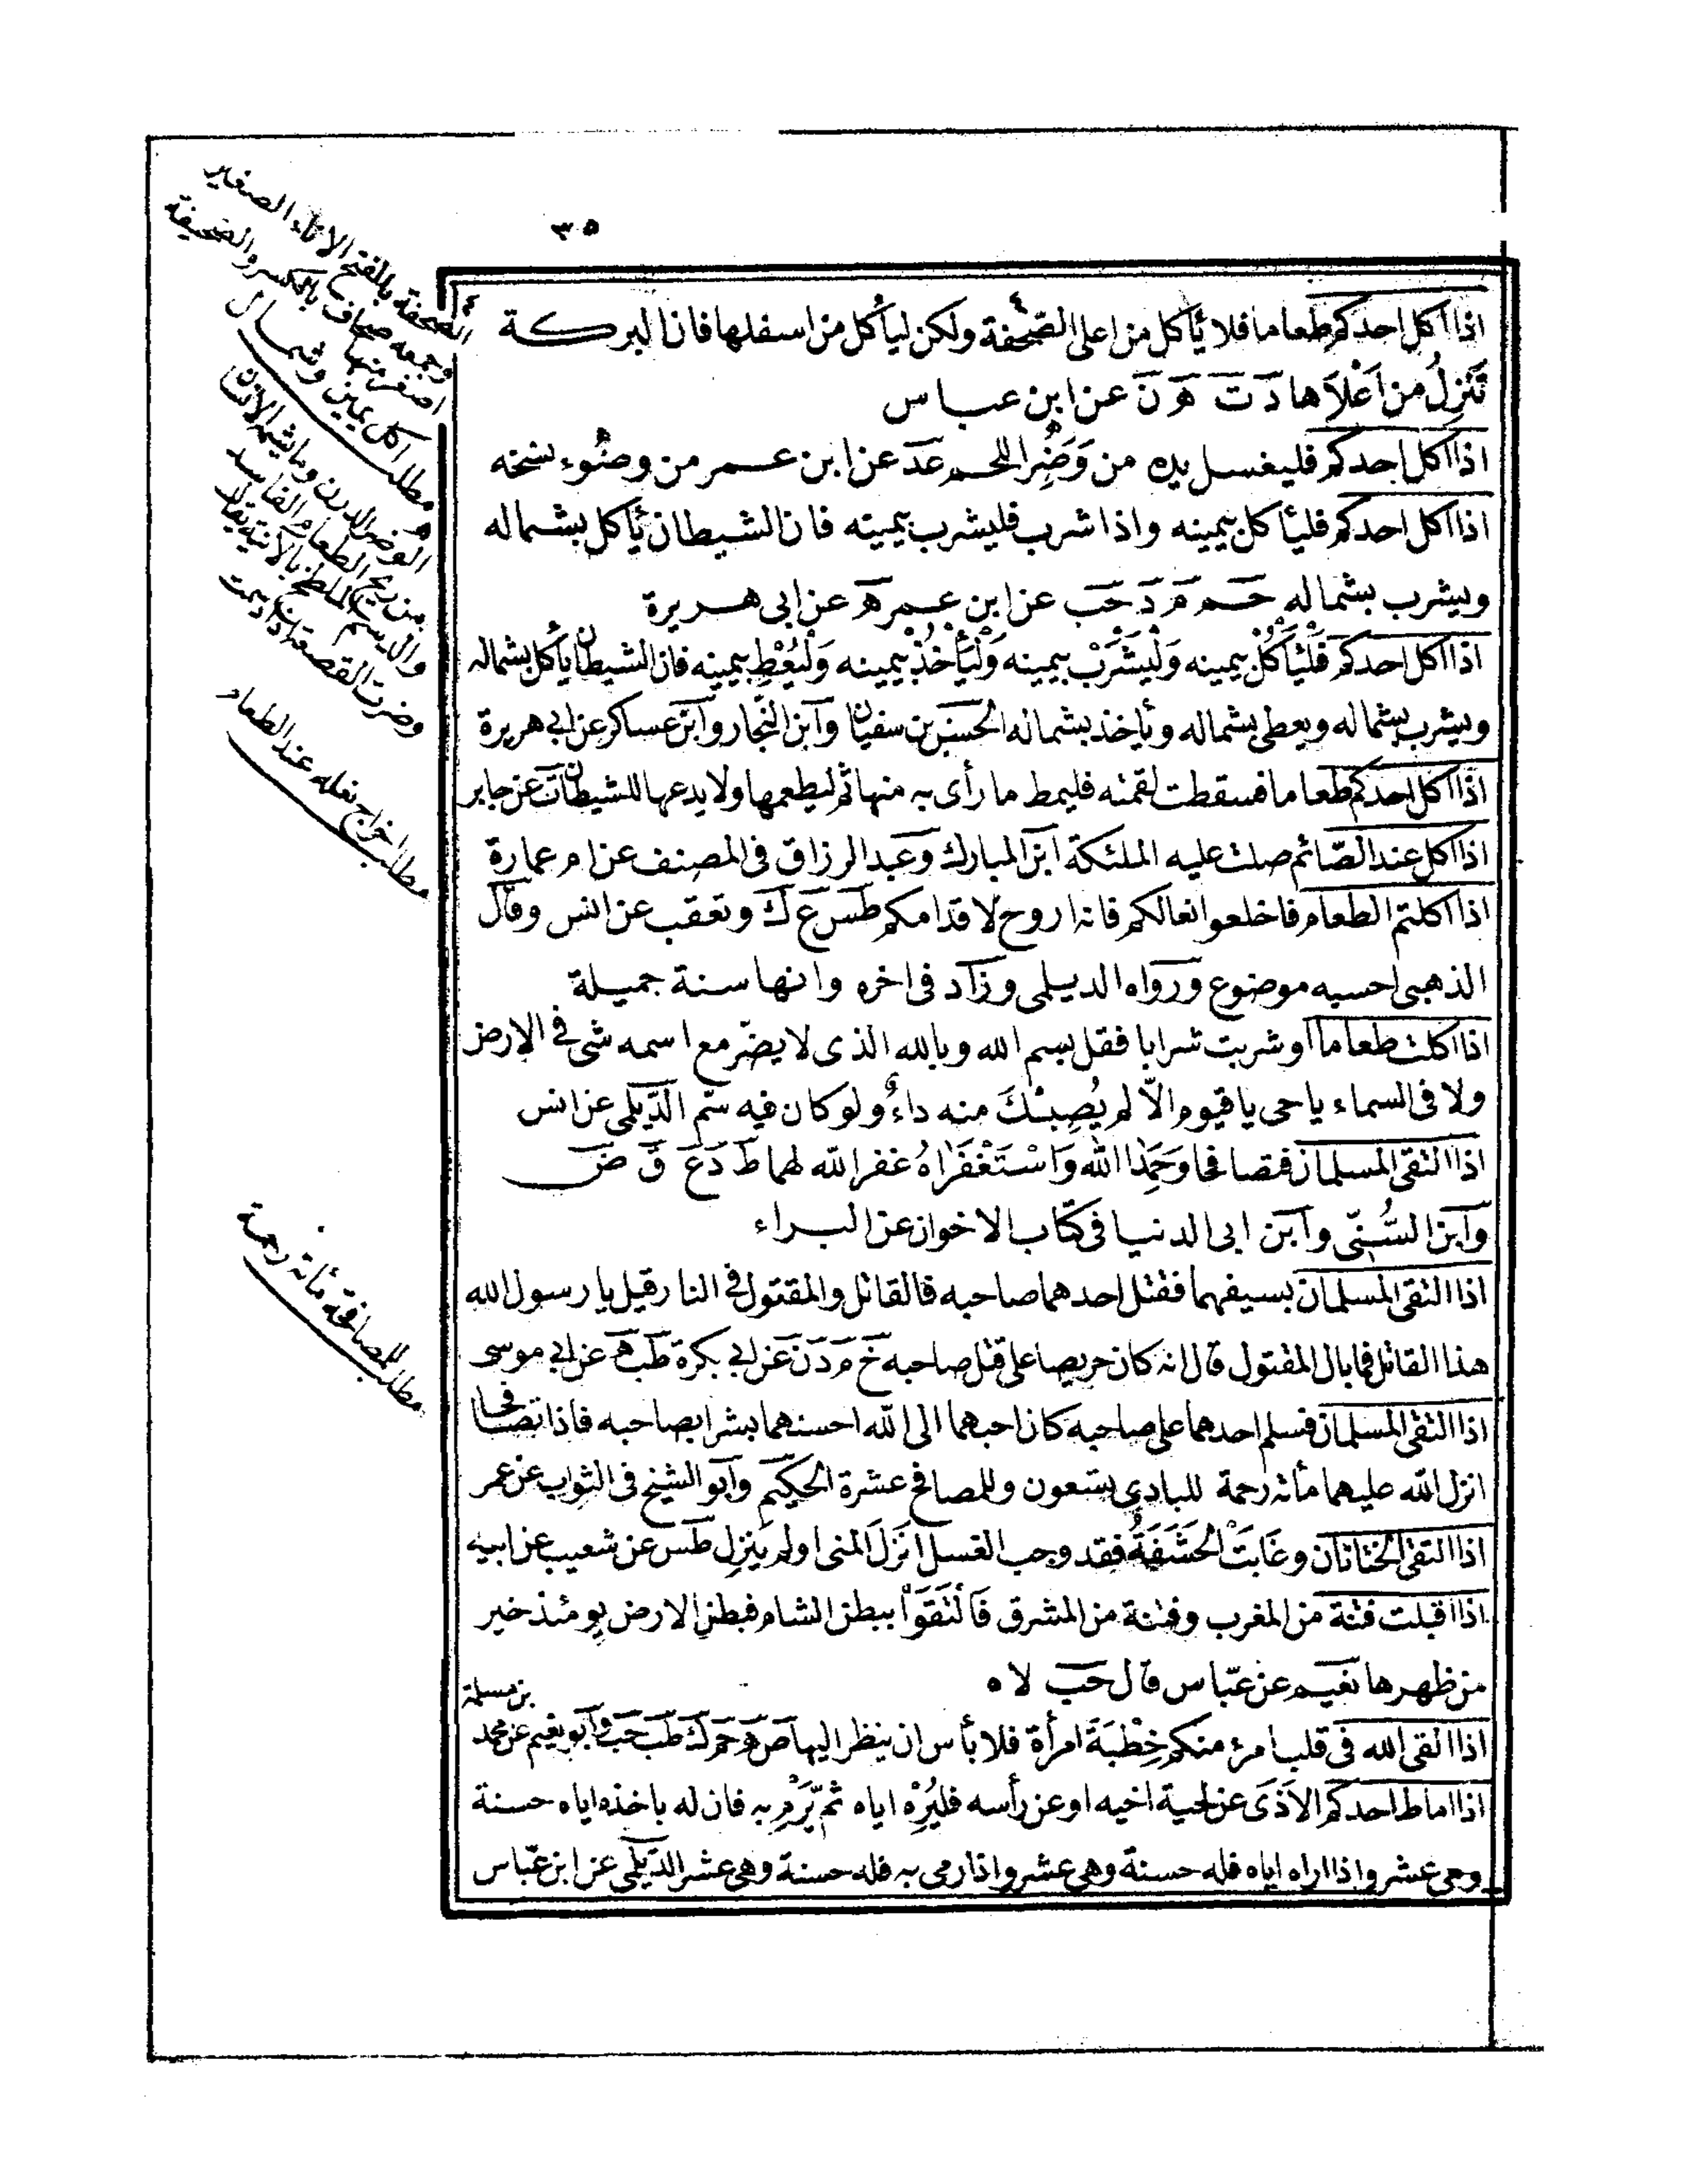 ٣٥
اذا اكل احدكم طعاما فلا يأكل من اعلى الصحفة ولكن ليأكل من اسفلها فان البركة
تَنْزِلُ من اَعْلَاها د ت ه ن عن ابن عباس
اذا اكل احدكم فليغسل يده من وَضَرِ اللحم عد عن ابن عمر من وضوء نسخه
اذا اكل احدكم فليأكل بيمينه واذا شرب فليشرب بيمينه فان الشيطان يأكل بشماله
ويشرب بشماله حم م د حب عن ابن عمر ه عن ابى هريرة
اذا اكل احدكم فَلْيَأْكُلْ بيمينه وَلْيَشْرَبْ بيمينه وَلْيَأْخُذْ بيمينه وَلْيُعْطِ بيمينه فان الشيطان يأكل بشماله
ويشرب بشماله ويعطى بشماله ويأخذ بشماله الحسن بن سفيان وابن النجار وابن عساكر عن ابى هريرة
اذا اكل احدكم طعاما فسقطت لقمته فليمط ما رأى به منها ثم ليطعمها ولا يدعها للشيطان ت عن جابر
اذا اكل عند الصّائم صلت عليه الملئكة ابن المبارك وعبد الرزاق فى المصنف عن ام عمارة
اذا اكلتم الطعام فاخلعوا نعالكم فانه اروح لاقدامكم طس ع ك وتعقب عن انس وقال
الذهبى احسبه موضوع ورواه الديلمى وزاد فى اخره وانها سنة جميلة
اذا اكلت طعاما او شربت شرابا فقل بسم الله وبالله الذى لا يضرّ مع اسمه شئ فى الارض
ولا فى السماء يا حى يا قيوم الّا لم يُصِبْكَ منه داءٌ ولو كان فيه سمّ الدّيلمى عن انس
اذا التقى المسلمان فتصافحا وحَمِدَا الله وَاسْتَغْفَرَاهُ غفر الله لهما ط د ع ق ض
وابن السُّنّى وابن ابى الدنيا فى كتاب الاخوان عن البراء
اذا التقى المسلمان بسيفهما فقتل احدهما صاحبه فالقاتل والمقتول فى النار قيل يا رسول الله
هذا القاتل فما بال المقتول قال انه كان حريصا على قتل صاحبه خ م د ن عن ابى بكرة طب ه عن ابى موسى
اذا التقى المسلمان فسلم احدهما على صاحبه كان احبهما الى الله احسنهما بشرا بصاحبه فاذا تصافحا
انزل الله عليهما مأته رحمة للبادى تسعون وللمصافح عشرة الحكيم وابو الشيخ فى الثواب عن عمر
اذا التقى الختانان وغَابَتْ الحَشَفَةُ فقد وجب الغسل اَنْزَلَ المنى او لم يَنْزِل طس عن شعيب عن ابيه
اذا اقبلت فتنة من المغرب وفتنة من المشرق فَالْتَقَوْا ببطن الشام فبطن الارض يومئذ خير
من ظهرها نعيم عن عبّاس قال حب لاه
اذا القى الله فى قلب امرء منكم خِطْبَةَ امرأة فلا بأس ان ينظر اليها ص ه حم ك طب حب وابو نعيم عن محمد بن مسلمة
اذا اماط احدكم الاَذَى عن لحية اخيه او عن رأسه فليُرِهْ اياه ثم يَرْمِ به فان له باخذه اياه حسنة
وهى عشر واذا اراه اياه فله حسنة وهى عشر واذا رمى به فله حسنة وهى عشر الدّيلمى عن ابن عبّاس
الصحفة بالفتح الاناء الصغير
وجمعه صحاف بالكسر والصحيفة
اصغر منها
مطلب اكل يمين وشمال
الوضر الدرن وما يشمه الانسان
من ريح الطعام الفاسد
مطلب اخراج نعله عند الطعام
مطلب المصافحة مأته رحمة